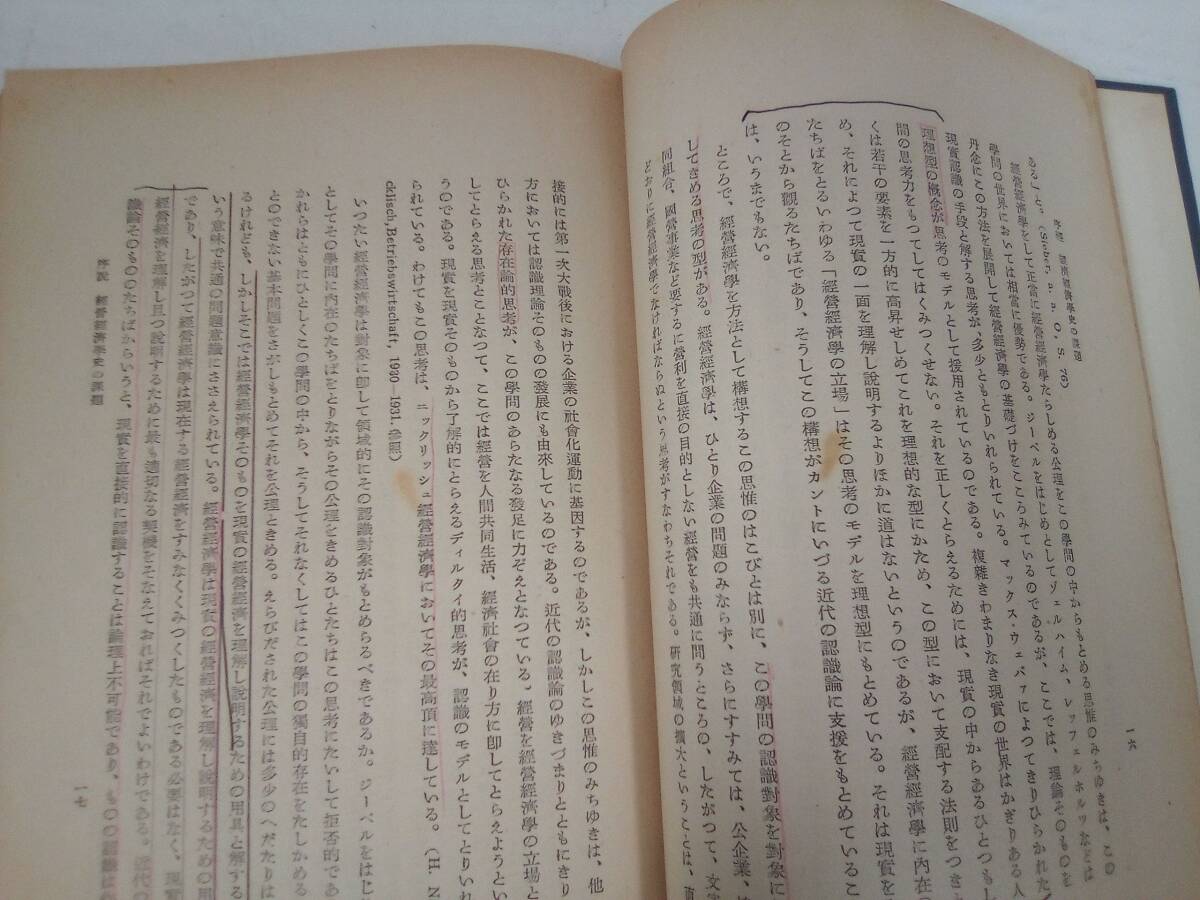 序說　經營經濟學史の課題
一六
あることと。(Sieber, a. a. O., S. 76)
經營經濟學をして正當に經營經濟學たらしめる公理をこの學問の中からもとめる思惟のみちゆきは、この
學問の世界においては相當に優勢である。ジーベルをはじめとしてヴェルハイム、レッフェルホルツなどは
丹念にこの方法を展開して經營經濟學の基礎づけをこころみているのであるが、ここでは、理論そのものを
現實認識の手段と解する思考が、多少ともとりいれられている。マックス・ウェバアによつてきりひらかれた
理想型の概念が思考のモデルとして援用されているのである。複雜きわまりなき現實の世界はかぎりある人
間の思考力をもつてしてはくみつくせない。それを正しくとらえるためには、現實の中からあるひとつもし
くは若干の要素を一方的に高昇せしめてこれを理想的な型にかため、この型において支配する法則をつきと
め、それによつて現實の一面を理解し說明するよりほかに道はないというのであるが、經營經濟學に內在の
たちばをとるいわゆる「經營經濟學の立場」はその思考のモデルを理想型にもとめている。それは現實を
のそとから觀るたちばであり、そうしてこの構想がカントにいづる近代の認識論に支援をもとめているこ
は、いうまでもない。
ところで、經營經濟學を方法として構想するこの思惟のはこびとは別に、この學問の認識對象を對象に
してきめる思考の型がある。經營經濟學は、ひとり企業の問題のみならず、さらにすすみては、公企業、
同組合、國營事業など要するに營利を直接の目的としない經營をも共通に問うところの、したがつて、文
どおりに經營經濟學でなければならぬという思考がすなわちそれである。研究領域の擴大ということは、直
接的には第一次大戰後における企業の社會化運動に基因するのであるが、しかしこの思惟のみちゆきは、他
方においては認識理論そのものの發展にも由來しているのである。近代の認識論のゆきづまりとともにきり
ひらかれた存在論的思考が、この學問のあらたなる發足に力ぞえとなつている。經營を經營經濟學の立場と
してとらえる思考とことなつて、ここでは經營を人間共同生活、經濟社會の在り方に卽してとらえようとい
うのである。現實を現實そのものから了解的にとらえるディルタイ的思考が、認識のモデルとしてとりいれ
られている。わけてもこの思考は、ニックリッシュ經營經濟學においてその最高頂に達している。(H. N
cklisch, Betriebswirtschaft, 1929-1931. 參照)
いつたい經營經濟學は對象に卽して領域的にその認識對象がもとめらるべきであるか。ジーベルをはじ
としてその學問に內在のたちばをとりながらその公理をきめるひとたちはこの思考にたいして拒否的であ
かれらはともにひとしくこの學問の中から、そうしてそれなくしてはこの學問の獨自的存在をたしかめる
とのできない基本問題をさがしもとめてそれを公理ときめる。えらびだされた公理には多少のへだたりは
るけれども、しかしそこでは經營經濟學そのものを現實の經營經濟を理解し說明するための用具と解する
いう意味で共通の問題意識にささえられている。經營經濟學は現實の經營經濟を理解し說明するための用
であり、したがつて經營經濟學は現在する經營經濟をすみなくくみつくしたものである必要はなく、現實
經營經濟を理解し且つ說明するために最も適切なる契機をそなえておればそれでよいわけである。近代の
識論そのもののたちばからいうと、現實を直接的に認識することは論理上不可能であり、ものの認識は
序說　經營經濟學史の課題
一七